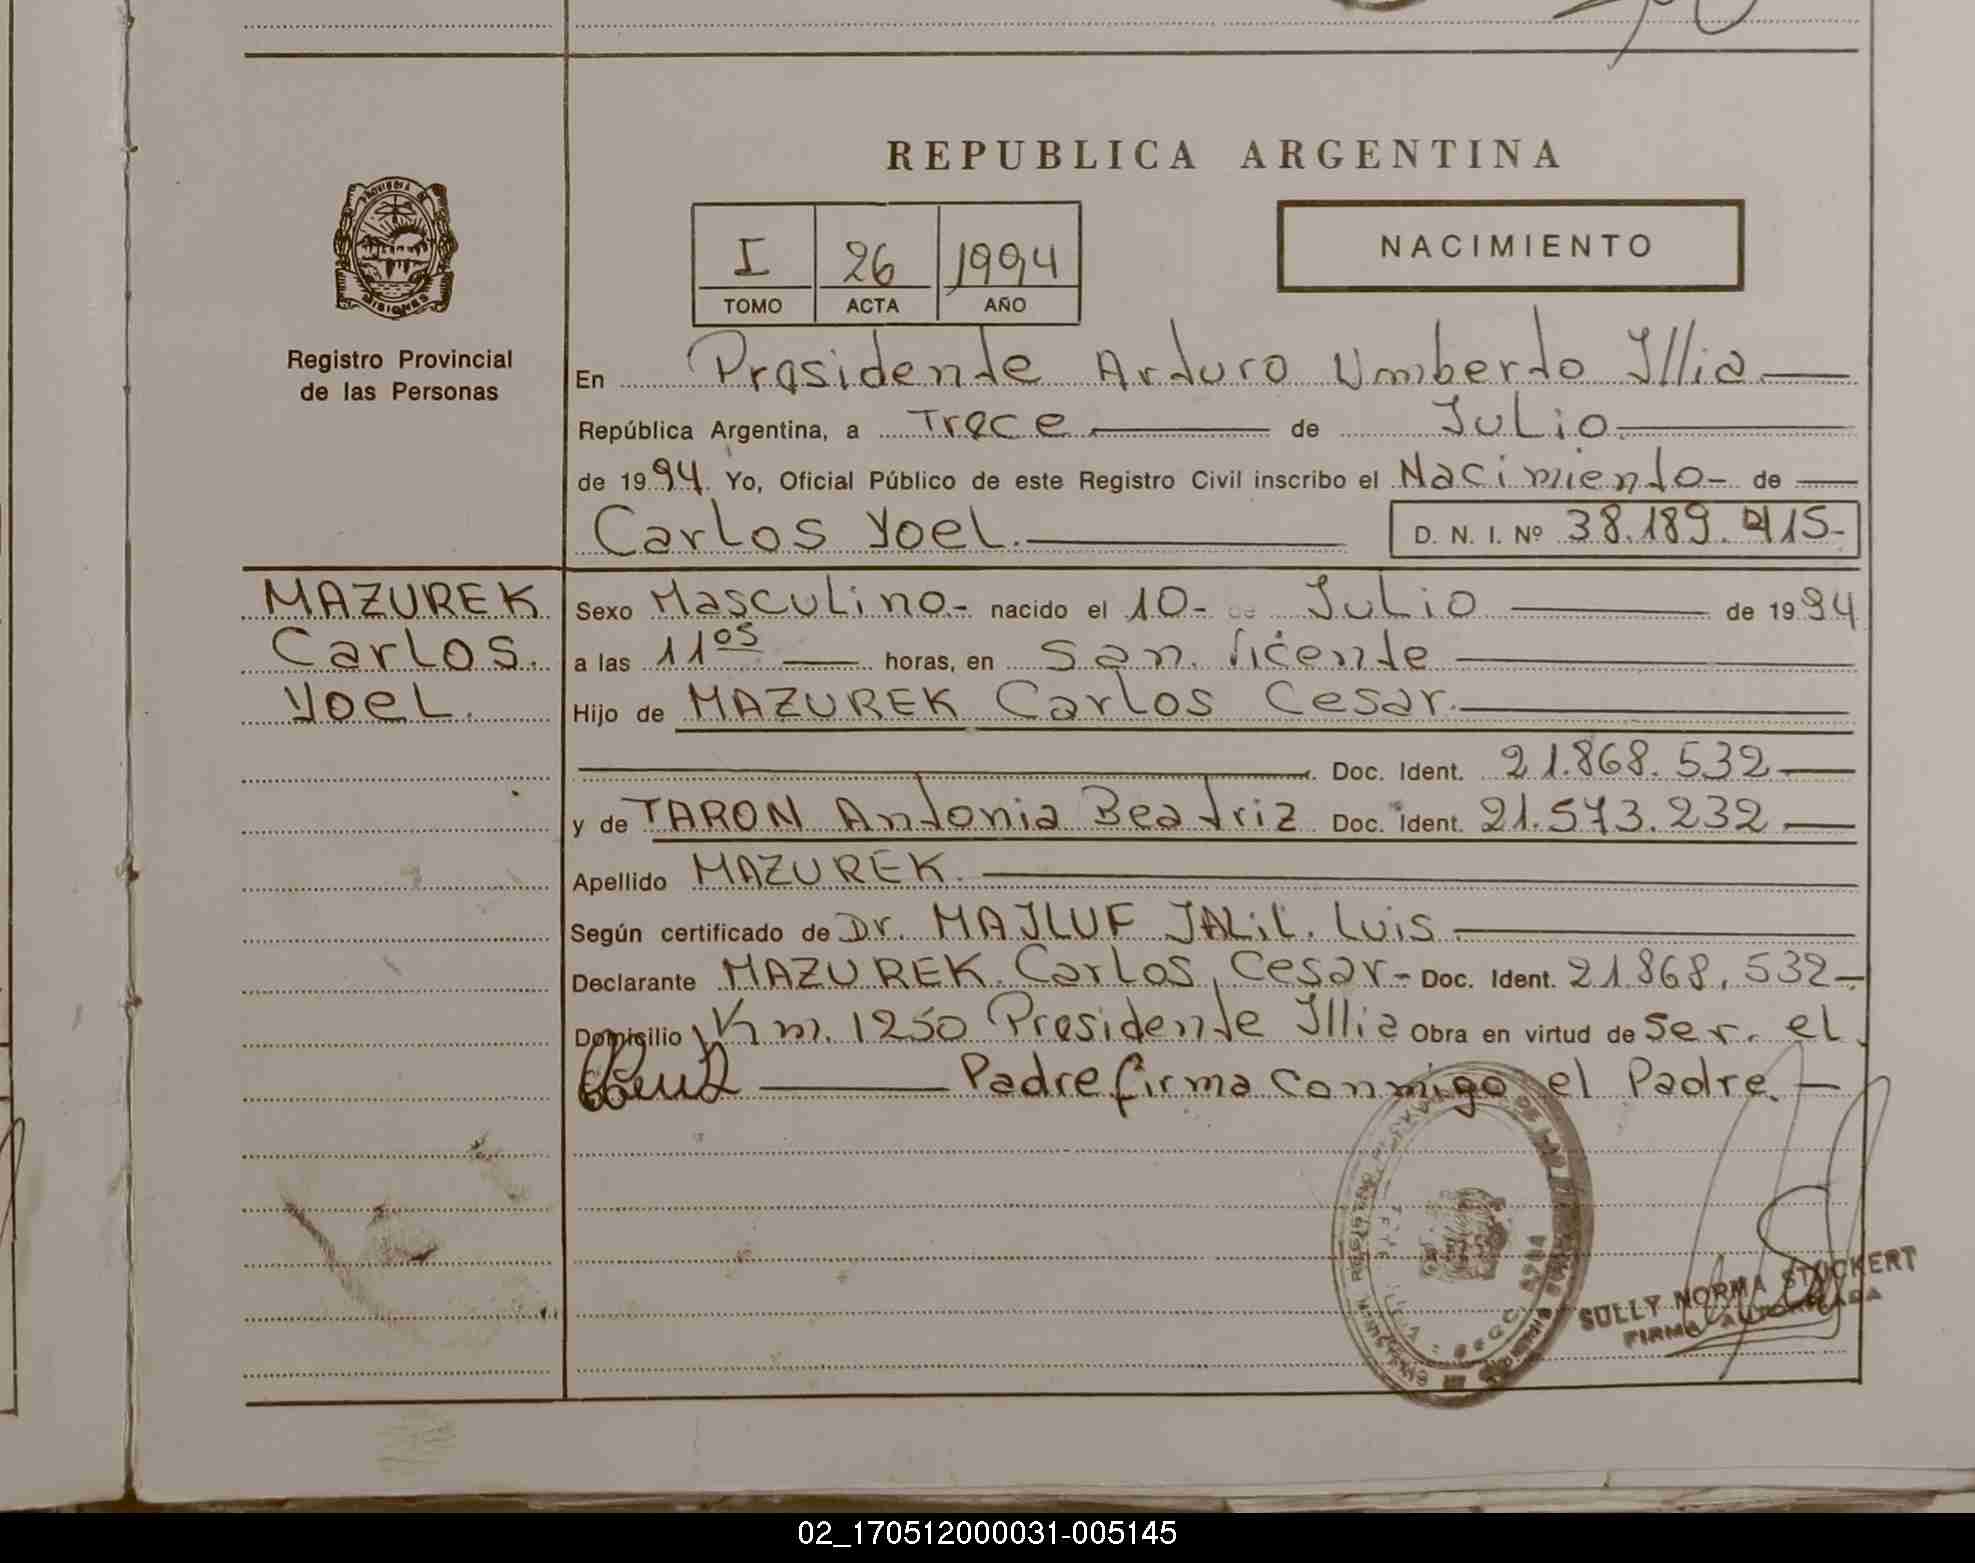 REPUBLICA ARGENTINA
PROVINCIA DE
MISIONES
Registro Provincial
de las Personas
I 26 1994
TOMO ACTA AÑO
NACIMIENTO
En Presidente Arturo Umberto Illia
República Argentina, a Trece de Julio
de 1994. Yo, Oficial Público de este Registro Civil inscribo el Nacimiento- de
Carlos Yoel. D. N. I. Nº 38.189.415-
MAZUREK
Carlos.
Yoel.
Sexo Masculino.- nacido el 10- de Julio de 1994
a las 11 05 horas, en San Vicente
Hijo de MAZUREK Carlos Cesar.
Doc. Ident. 21.868.532
y de TARON Antonia Beatriz Doc. Ident. 21.573.232
Apellido MAZUREK
Según certificado de Dr. MAJLUF JALIL. Luis
Declarante MAZUREK. Carlos, Cesar- Doc. Ident. 21.868.532-
Domicilio Km. 1250 Presidente Illia Obra en virtud de Ser. el
Padre firma conmigo el Padre.
SULLY NORMA STUCKERT
FIRMA AUTORIZADA
02_170512000031-005145